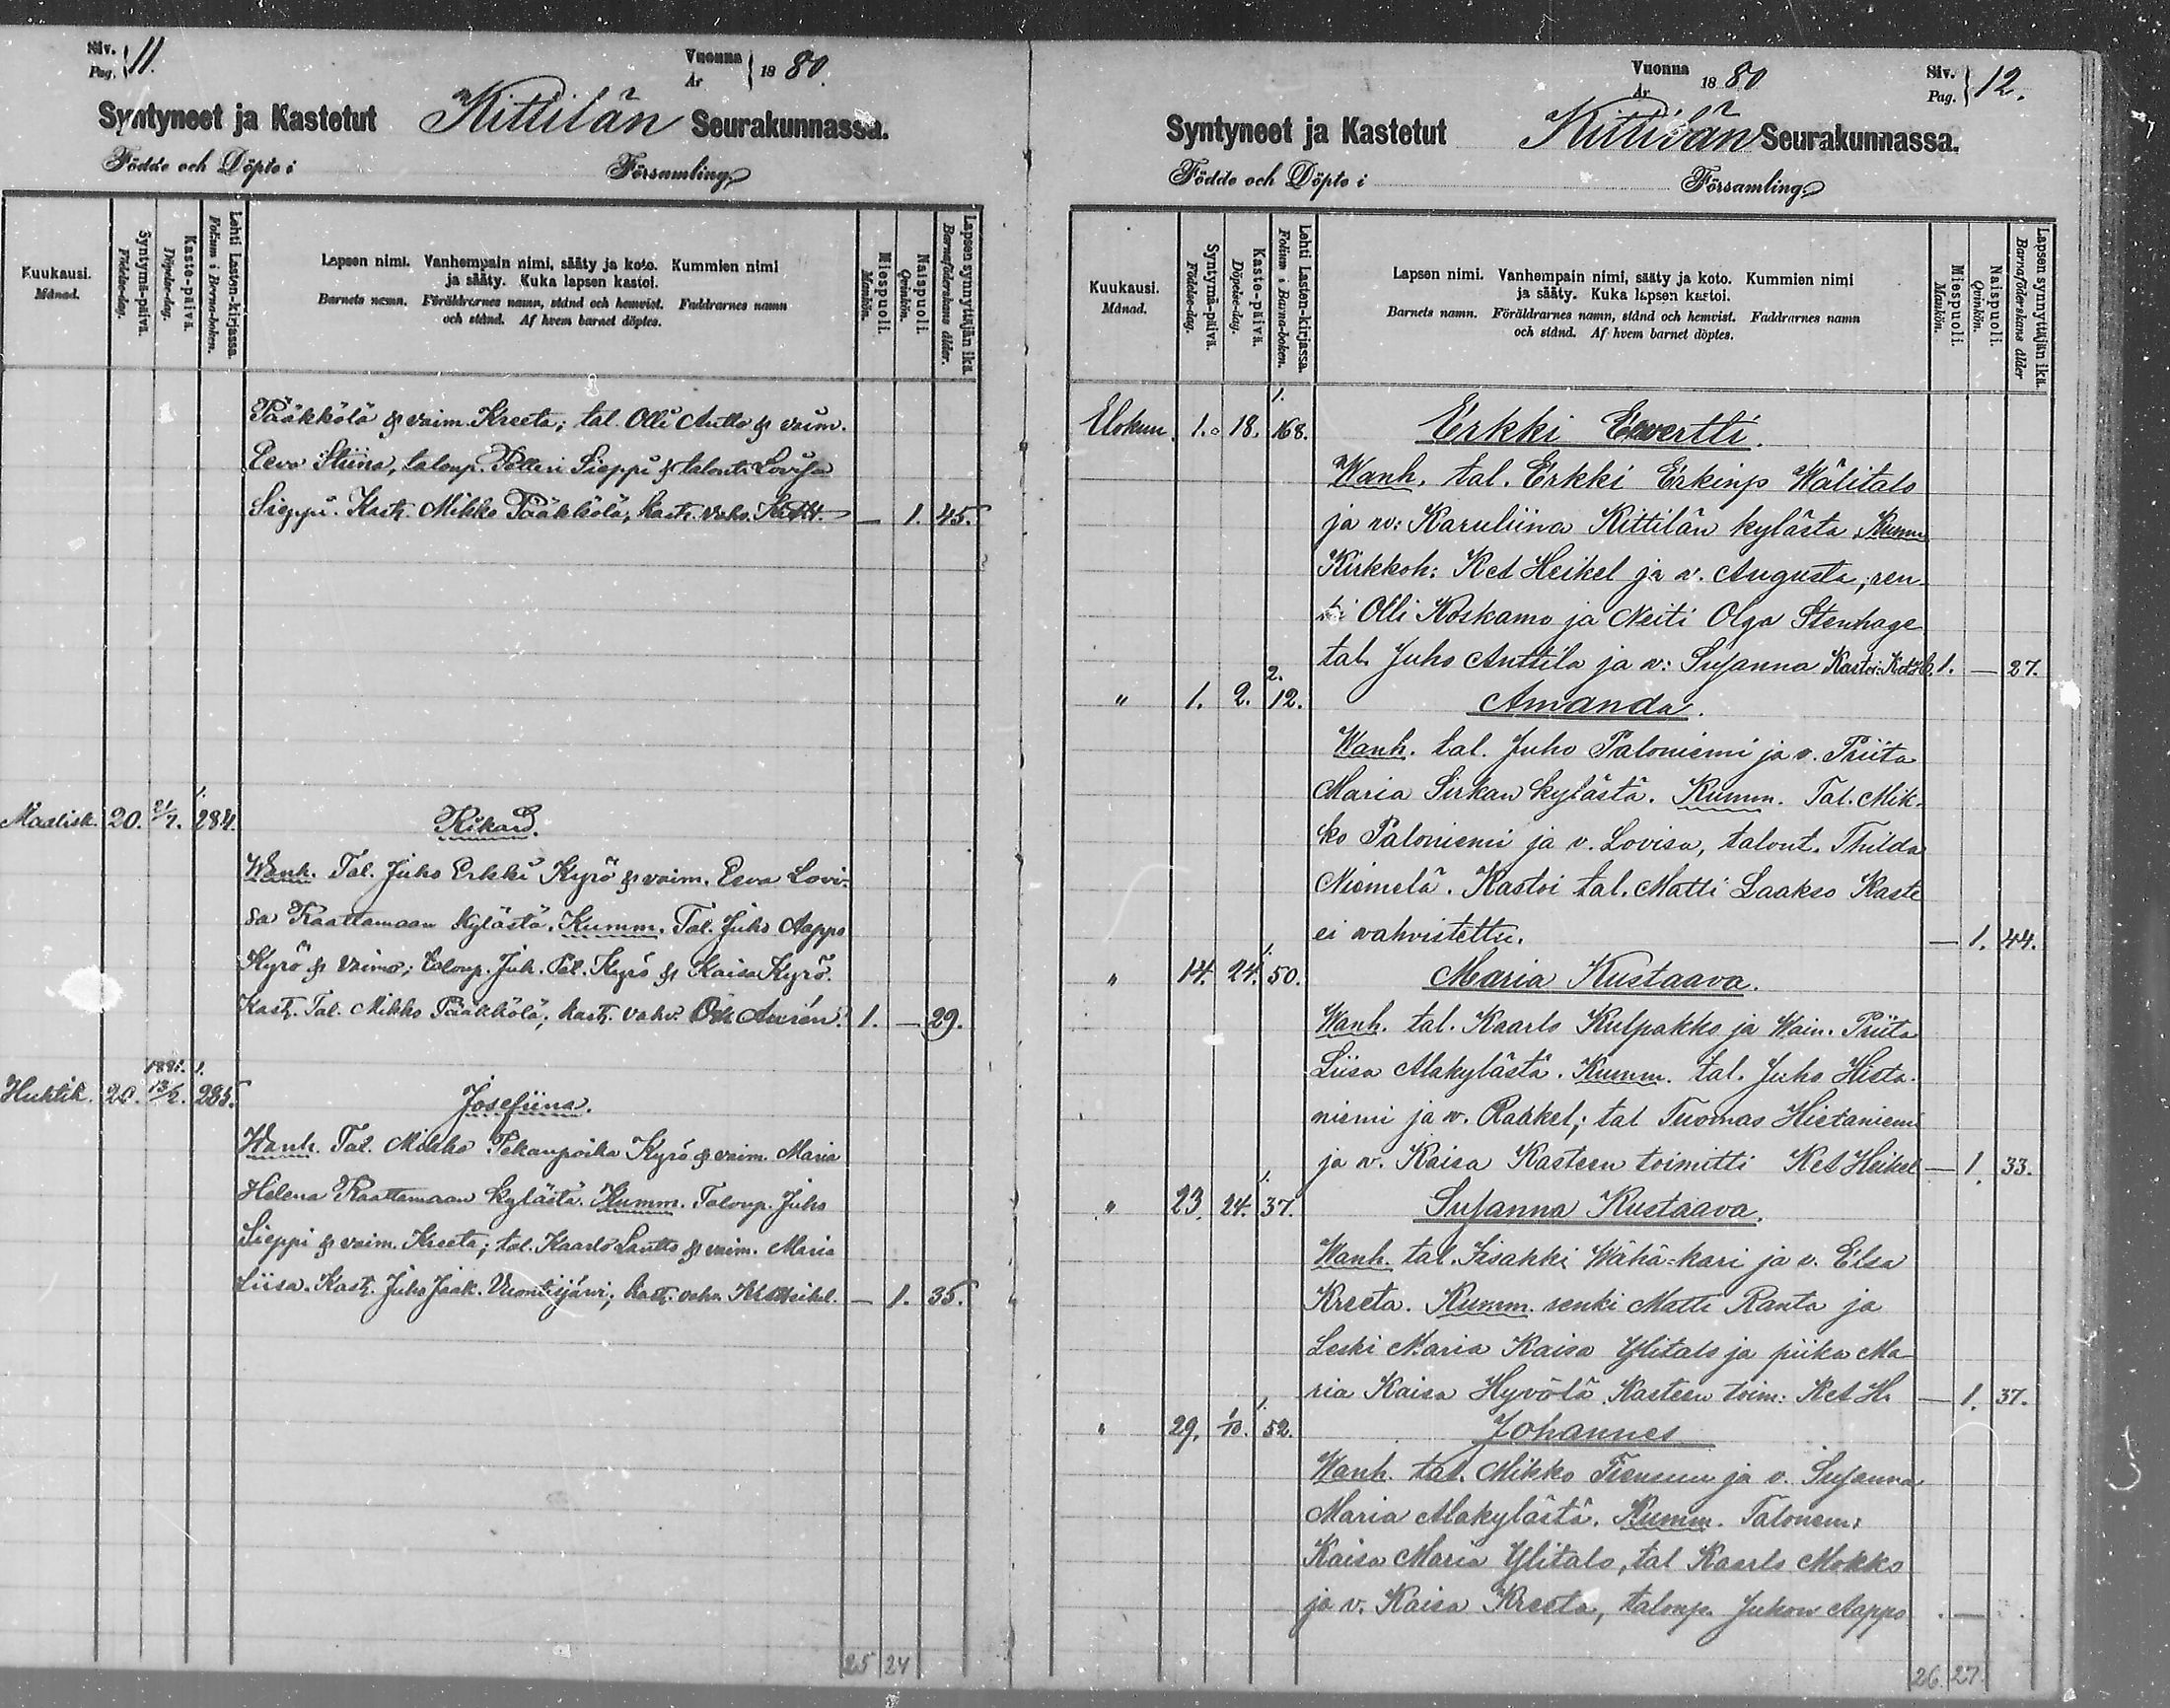 Siv. Pag. 11.
Vuonna År 1880.
Syntyneet ja Kastetut Kittilän Seurakunnassa.
Födde och Döpte i Församling.
Kuukausi. Månad.
Syntymä-päivä. Födelse-dag.
Kaste-päivä. Döpelse-dag.
Lehti Lasten-kirjassa. Folium i Barna-boken.
Lapsen nimi. Vanhempain nimi, sääty ja koto. Kummien nimi
ja sääty. Kuka lapsen kastoi.
Barnets namn. Föräldrarnes namn, stånd och hemvist. Faddrarnes namn
och stånd. Af hvem barnet döptes.
Miespuoli. Mankön.
Naispuoli. Qvinkön.
Lapsen synnyttäjän ikä. Barnaföderskans ålder.
Pääkkölä & vaim. Kreeta; tal. Olli Autto & vaim.
Eeva Stiina, taloup. Petteri Sieppi & talont. Lovisa
Sieppi. Kast. Mikko Pääkkölä; kast. vahv. — 1. 45.
Maalisk. 20. 21/7. 1. 284. Rikard.
Wanh. Tal. Juho Erkki Kyrö & vaim. Eeva Lovi-
sa Raattamaan kylästä. Kumm. Tal. Juho Aappo
Kyrö & vaimo; taloup. Juh. Pet. Kyrö & Kaisa Kyrö.
Kast. Tal. Mikko Pääkkölä; kast. vahv. 1. — 29.
1881. 1.
Huhtik. 20. 13/2. 285. Josefiina.
Wanh. Tal. Mikko Pekanpoika Kyrö & vaim. Maria
Helena Raattamaan kylästä. Kumm. Taloup. Juho
Sieppi & vaim. Kreeta; tal. Kaarlo Lautto & vaim. Maria
Liisa. Kast. Juho Jaak. Vuontisjärvi; kast. vahv. K. Heikel. — 1. 35.
25 24
Vuonna År 1880
Siv. Pag. 12.
Syntyneet ja Kastetut Kittilän Seurakunnassa.
Födde och Döpte i Församling.
Kuukausi. Månad.
Syntymä-päivä. Födelse-dag.
Kaste-päivä. Döpelse-dag.
Lehti Lasten-kirjassa. Folium i Barna-boken.
Lapsen nimi. Vanhempain nimi, sääty ja koto. Kummien nimi
ja sääty. Kuka lapsen kastoi.
Barnets namn. Föräldrarnes namn, stånd och hemvist. Faddrarnes namn
och stånd. Af hvem barnet döptes.
Miespuoli. Mankön.
Naispuoli. Qvinkön.
Lapsen synnyttäjän ikä. Barnaföderskans ålder
Elokuu 1. 18. 1. 168. Erkki Ewertti.
Wanh. tal. Erkki Erkinp Wälitalo
ja w: Karuliina Kittilän kylästä Kumm
Kirkkoh: K Heikel ja w. Augusta; ren-
ki Olli Koskamo ja Neiti Olga Stenhage
tal. Juho Anttila ja w: Susanna Kastoi: 1. — 27.
" 1. 2. 2. 12. Amanda.
Wanh. tal. Juho Paloniemi ja v. Priita
Maria Sirkan kylästä. Kumm. Tal. Mik-
ko Paloniemi ja v. Lovisa, talont. Thilda
Niemelä. Kastoi tal. Matti Laakso Kaste
ei wahvistettu. — 1. 44.
" 14. 24. 1. 50. Maria Kustaava.
Wanh. tal. Kaarlo Kulpakko ja Waim. Priita
Liisa Alakylästä. Kumm. tal. Juho Hieta-
niemi ja w. Raakel; tal Tuomas Hietaniemi
ja w. Kaisa Kasteen toimitti K Heikel — 1. 33.
" 23. 24. 1. 37. Susanna Kustaava.
Wanh. tal. Iisakki Wähä-kari ja v. Elsa
Kreeta. Kumm. renki Matti Ranta ja
Leski Maria Kaisa Ylitalo ja piika Ma-
ria Kaisa Hyvölä Kasteen toim: K H. — 1. 37.
" 29. 1/10. 1. 52. Johannes
Wanh. tal. Mikko Tiensuu ja v. Susanna
Maria Alakylästä. Kumm. Talonem:
Kaisa Maria Ylitalo, tal Kaarlo Mokko
ja v. Kaisa Kreeta, taloup. Juhon Aappo —
26. 27.